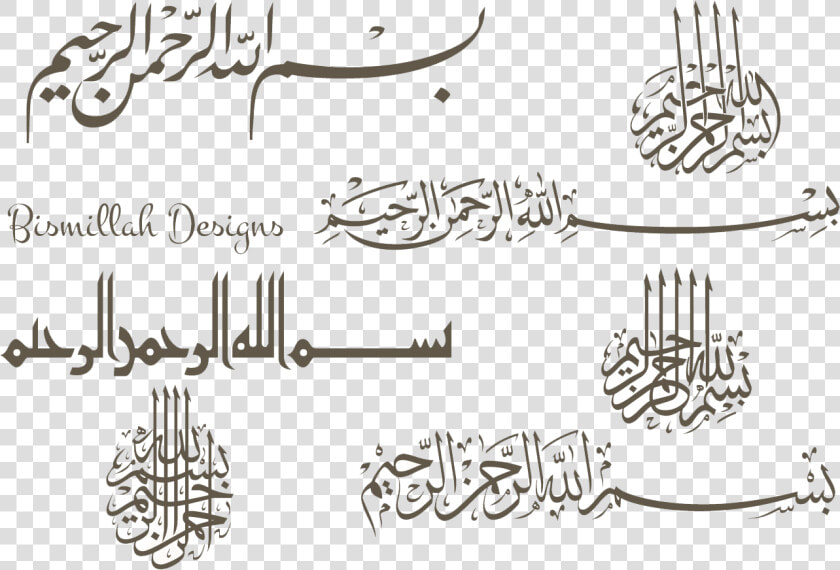 بسم الله الرحمن الرحيم
بسم الله الرحمن الرحيم
Bismillah Designs
بِسْمِ اللَّهِ الرَّحْمَنِ الرَّحِيمِ
بسم الله الرحمن الرحيم
بسم الله الرحمن الرحيم
بسم الله الرحمن الرحيم
بسم الله الرحمن الرحيم